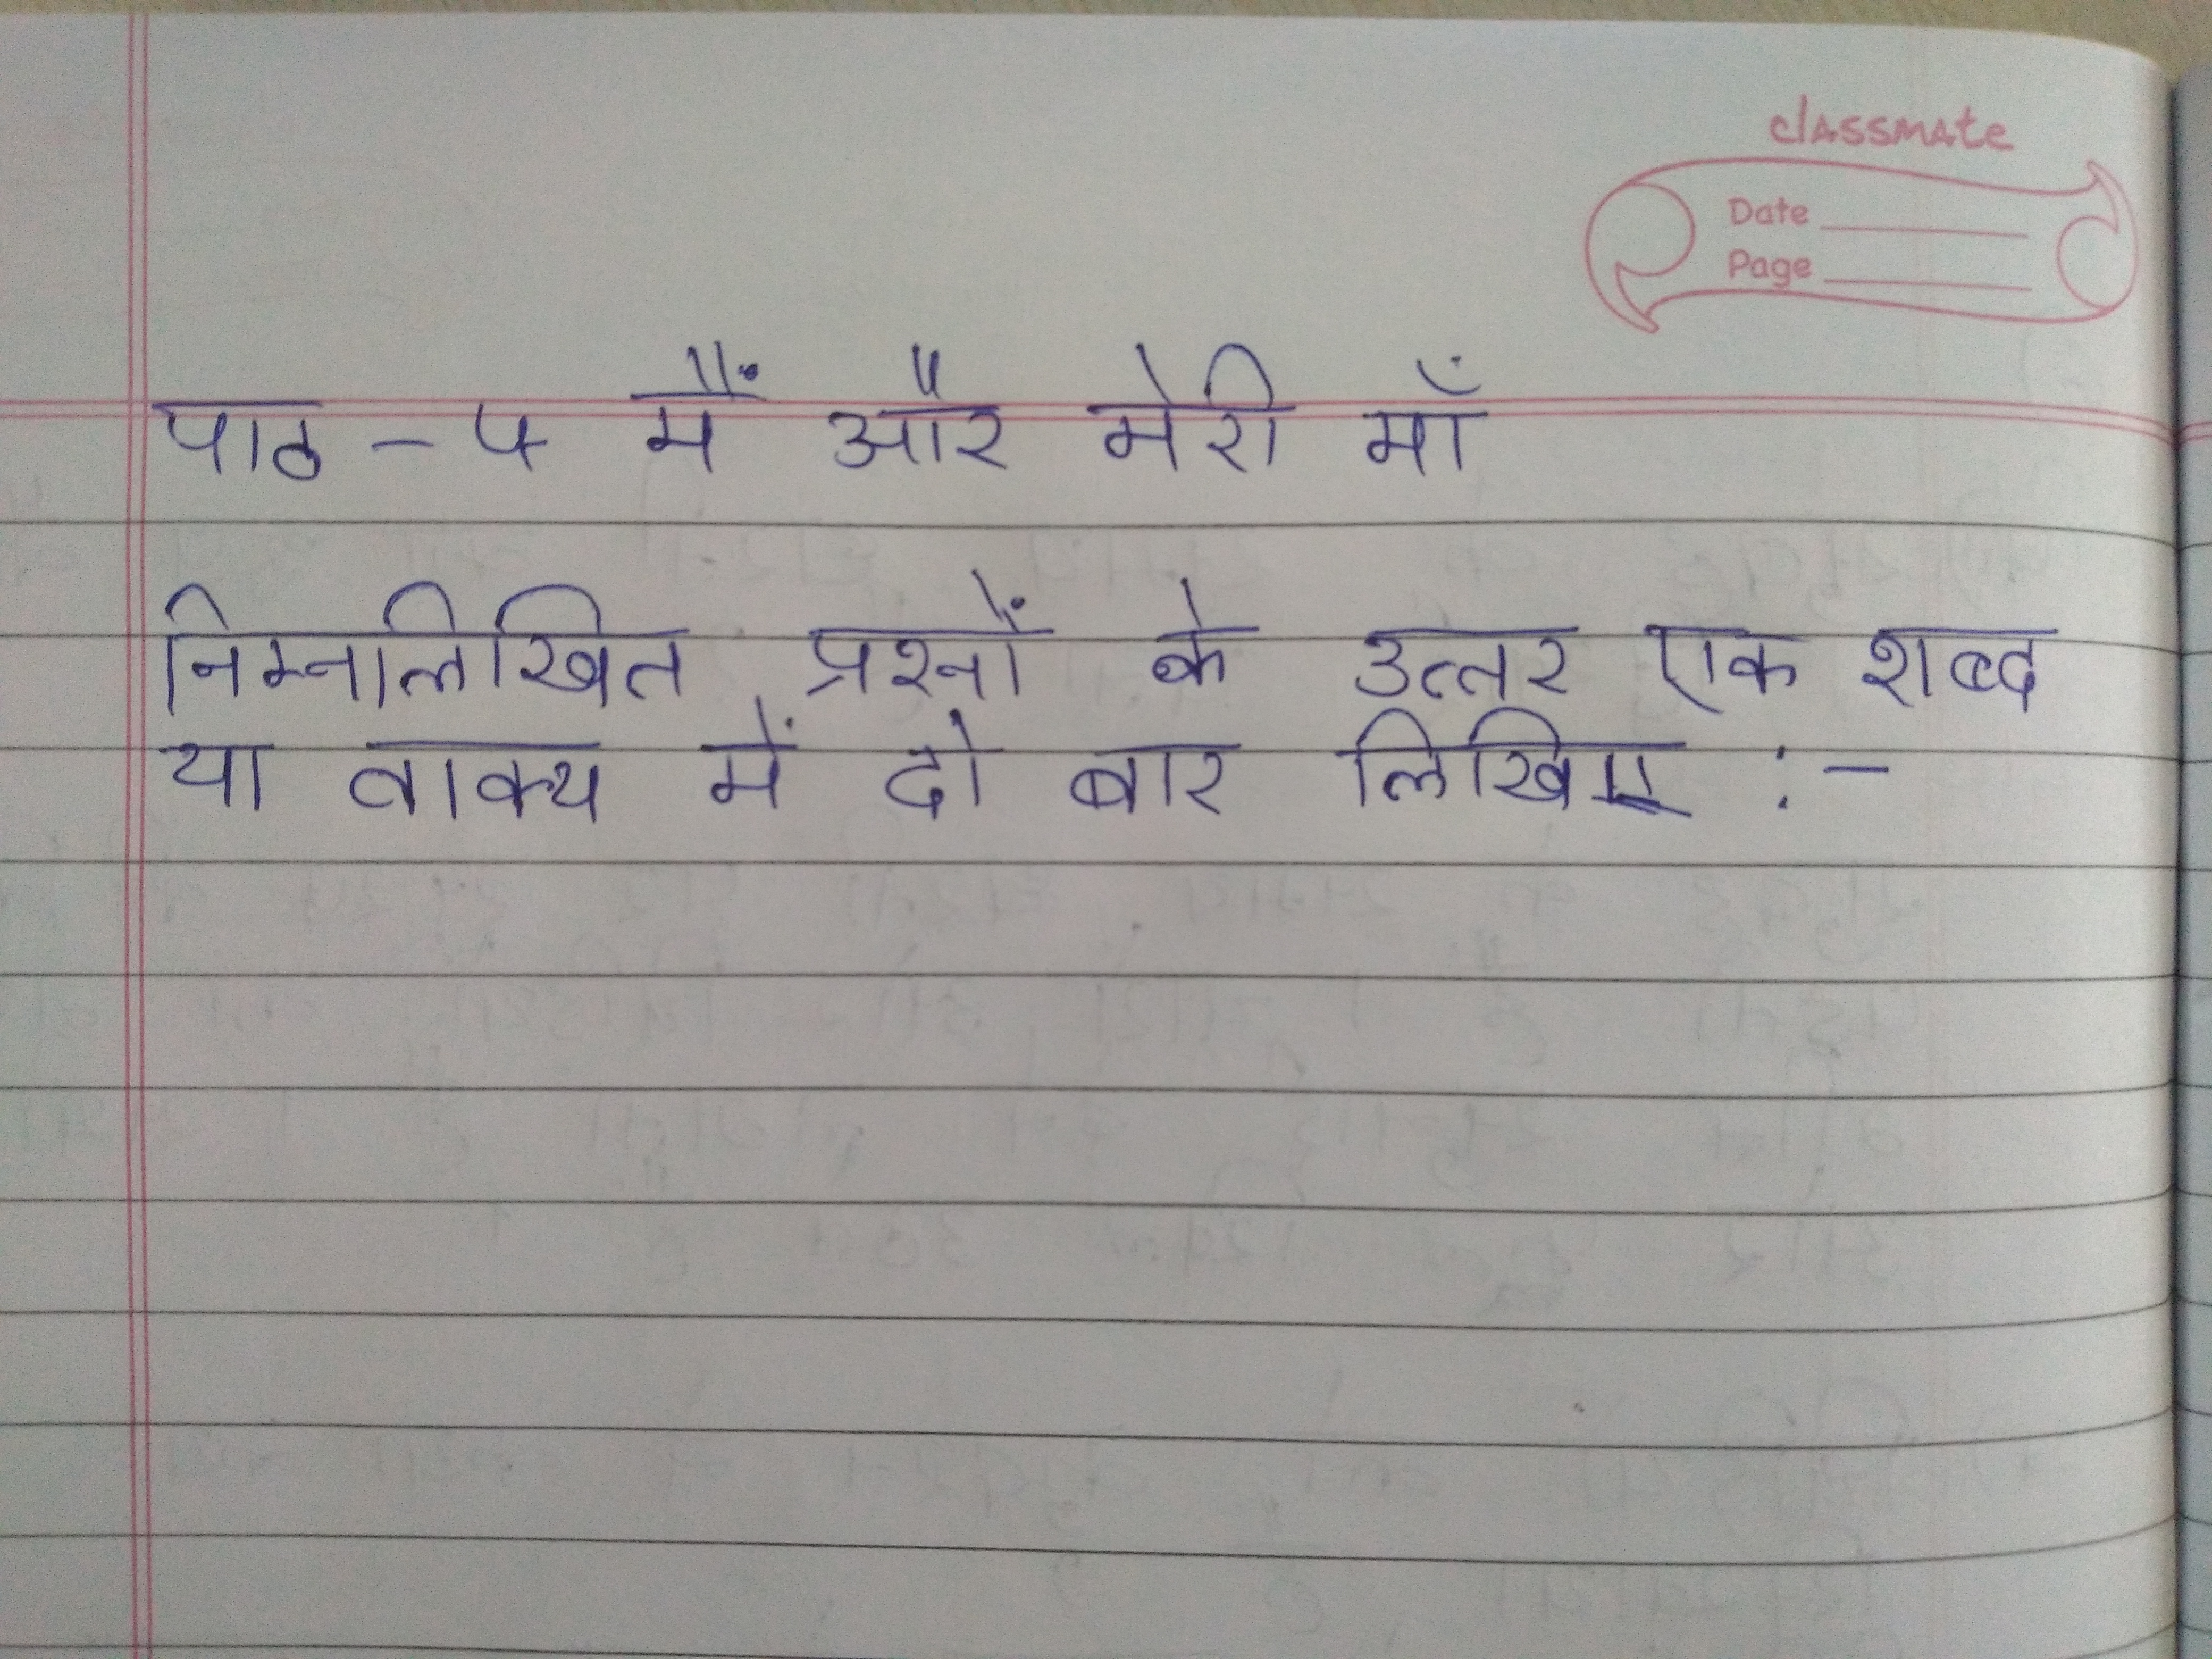 classmate
Date
Page
पाठ - ५ मैं और मेरी माँ
निम्नलिखित प्रश्नों के उत्तर एक शब्द
या वाक्य में दो बार लिखिए :-